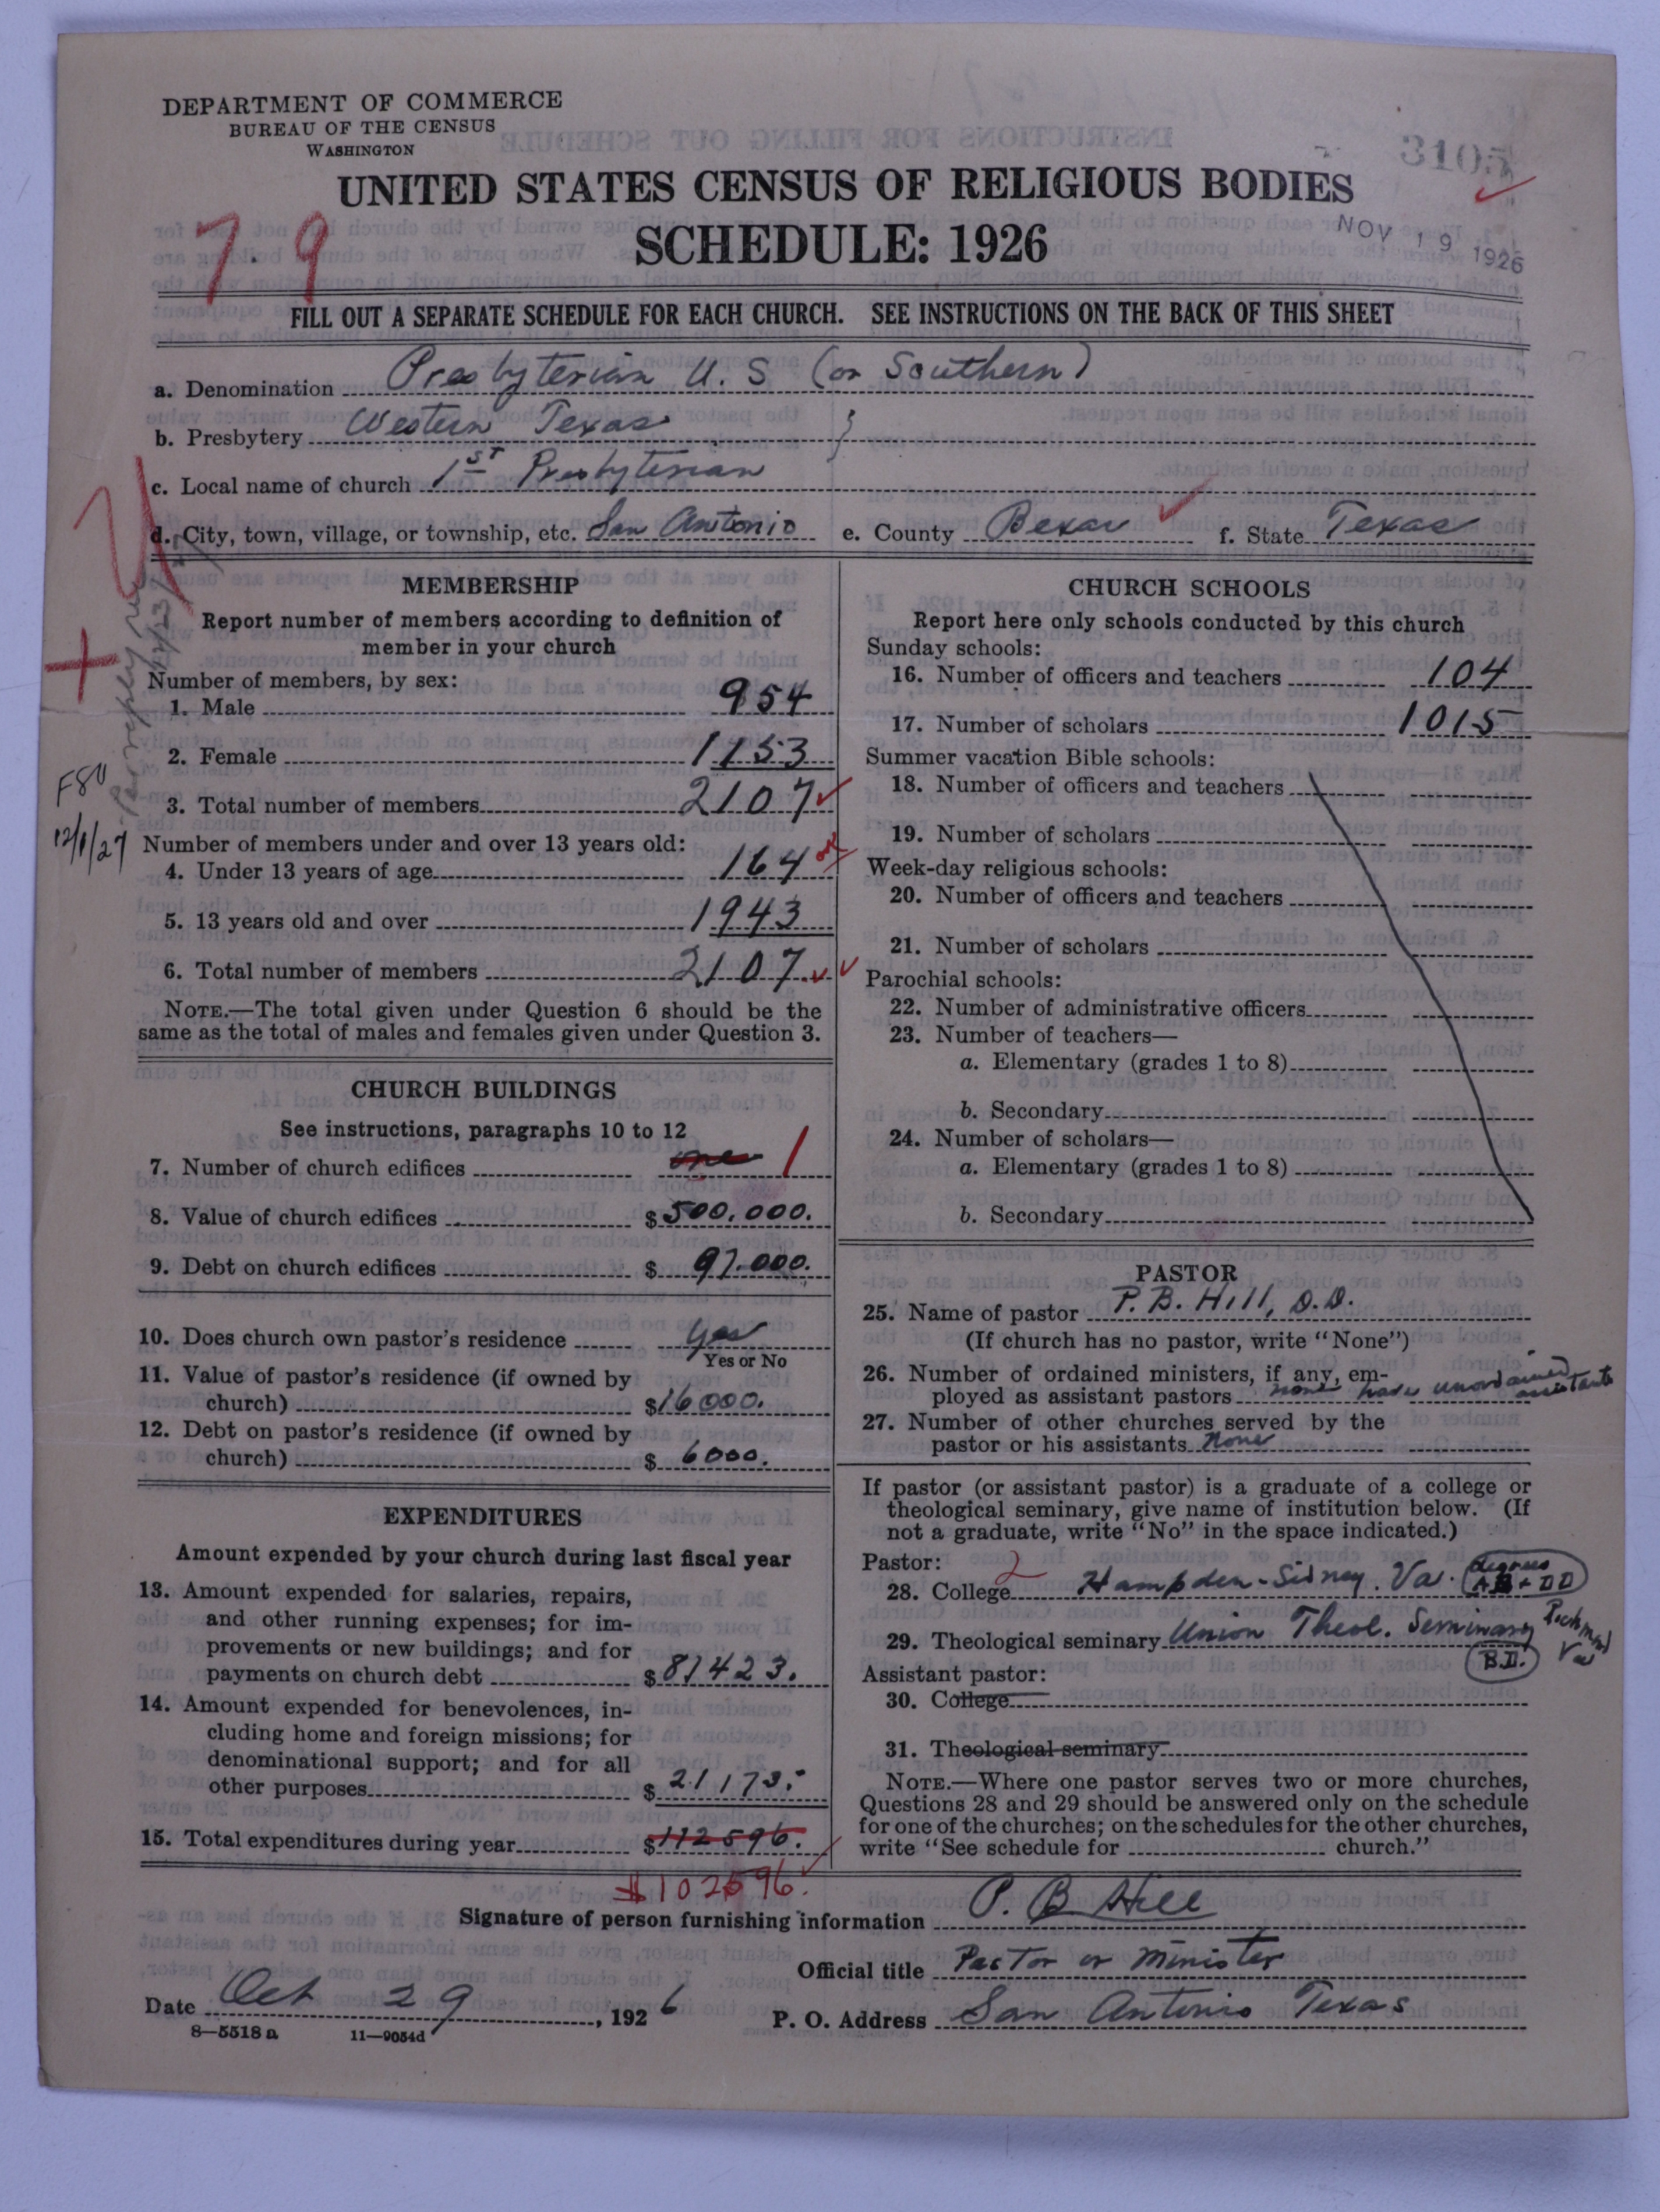 DEPARTMENT OF COMMERCE
BUREAU OF THE CENSUS
WASHINGTON
3105
UNITED STATES CENSUS OF RELIGIOUS BODIES
SCHEDULE: 1926
NOV 19 1926
7.9
FILL OUT A SEPARATE SCHEDULE FOR EACH CHURCH. SEE INSTRUCTIONS ON THE BACK OF THIS SHEET
a. Denomination Presbyterian U.S (or Southern)
b. Presbytery Western Texas
c. Local name of church 1st Presbyterian
d. City, town, village, or township, etc. San Antonio e. County Bexar f. State Texas
MEMBERSHIP
Report number of members according to definition of
member in your church
Number of members, by sex:
1. Male 954
2. Female 1153
3. Total number of members 2107
F80
12/1/27
Number of members under and over 13 years old:
4. Under 13 years of age 164
5. 13 years old and over 1943
6. Total number of members 2107
NOTE.—The total given under Question 6 should be the
same as the total of males and females given under Question 3.
CHURCH BUILDINGS
See instructions, paragraphs 10 to 12
7. Number of church edifices one 1
8. Value of church edifices $500.000.
9. Debt on church edifices $ 97.000.
10. Does church own pastor's residence yes
Yes or No
11. Value of pastor's residence (if owned by
church) $16000.
12. Debt on pastor's residence (if owned by
church) $ 6000.
EXPENDITURES
Amount expended by your church during last fiscal year
13. Amount expended for salaries, repairs,
and other running expenses; for im-
provements or new buildings; and for
payments on church debt $81423.
14. Amount expended for benevolences, in-
cluding home and foreign missions; for
denominational support; and for all
other purposes $21173.
15. Total expenditures during year $112596.
$102596.
CHURCH SCHOOLS
Report here only schools conducted by this church
Sunday schools:
16. Number of officers and teachers 104
17. Number of scholars 1015
Summer vacation Bible schools:
18. Number of officers and teachers
19. Number of scholars
Week-day religious schools:
20. Number of officers and teachers
21. Number of scholars
Parochial schools:
22. Number of administrative officers
23. Number of teachers—
a. Elementary (grades 1 to 8)
b. Secondary
24. Number of scholars—
a. Elementary (grades 1 to 8)
b. Secondary
PASTOR
25. Name of pastor P. B. Hill, D.D.
(If church has no pastor, write "None")
26. Number of ordained ministers, if any, em-
ployed as assistant pastors none have unordained assistants
27. Number of other churches served by the
pastor or his assistants None
If pastor (or assistant pastor) is a graduate of a college or
theological seminary, give name of institution below. (If
not a graduate, write "No" in the space indicated.)
Pastor: 2
28. College Hampden-Sidney. Va. degrees AB + DD
29. Theological seminary Union Theol. Seminary Richmond Va
B.D.
Assistant pastor:
30. College
31. Theological seminary
NOTE.—Where one pastor serves two or more churches,
Questions 28 and 29 should be answered only on the schedule
for one of the churches; on the schedules for the other churches,
write "See schedule for church."
Signature of person furnishing information P. B Hill
Official title Pastor or Minister
Date Oct 29, 1926 P. O. Address San Antonio Texas
8—5518 a 11—9054d